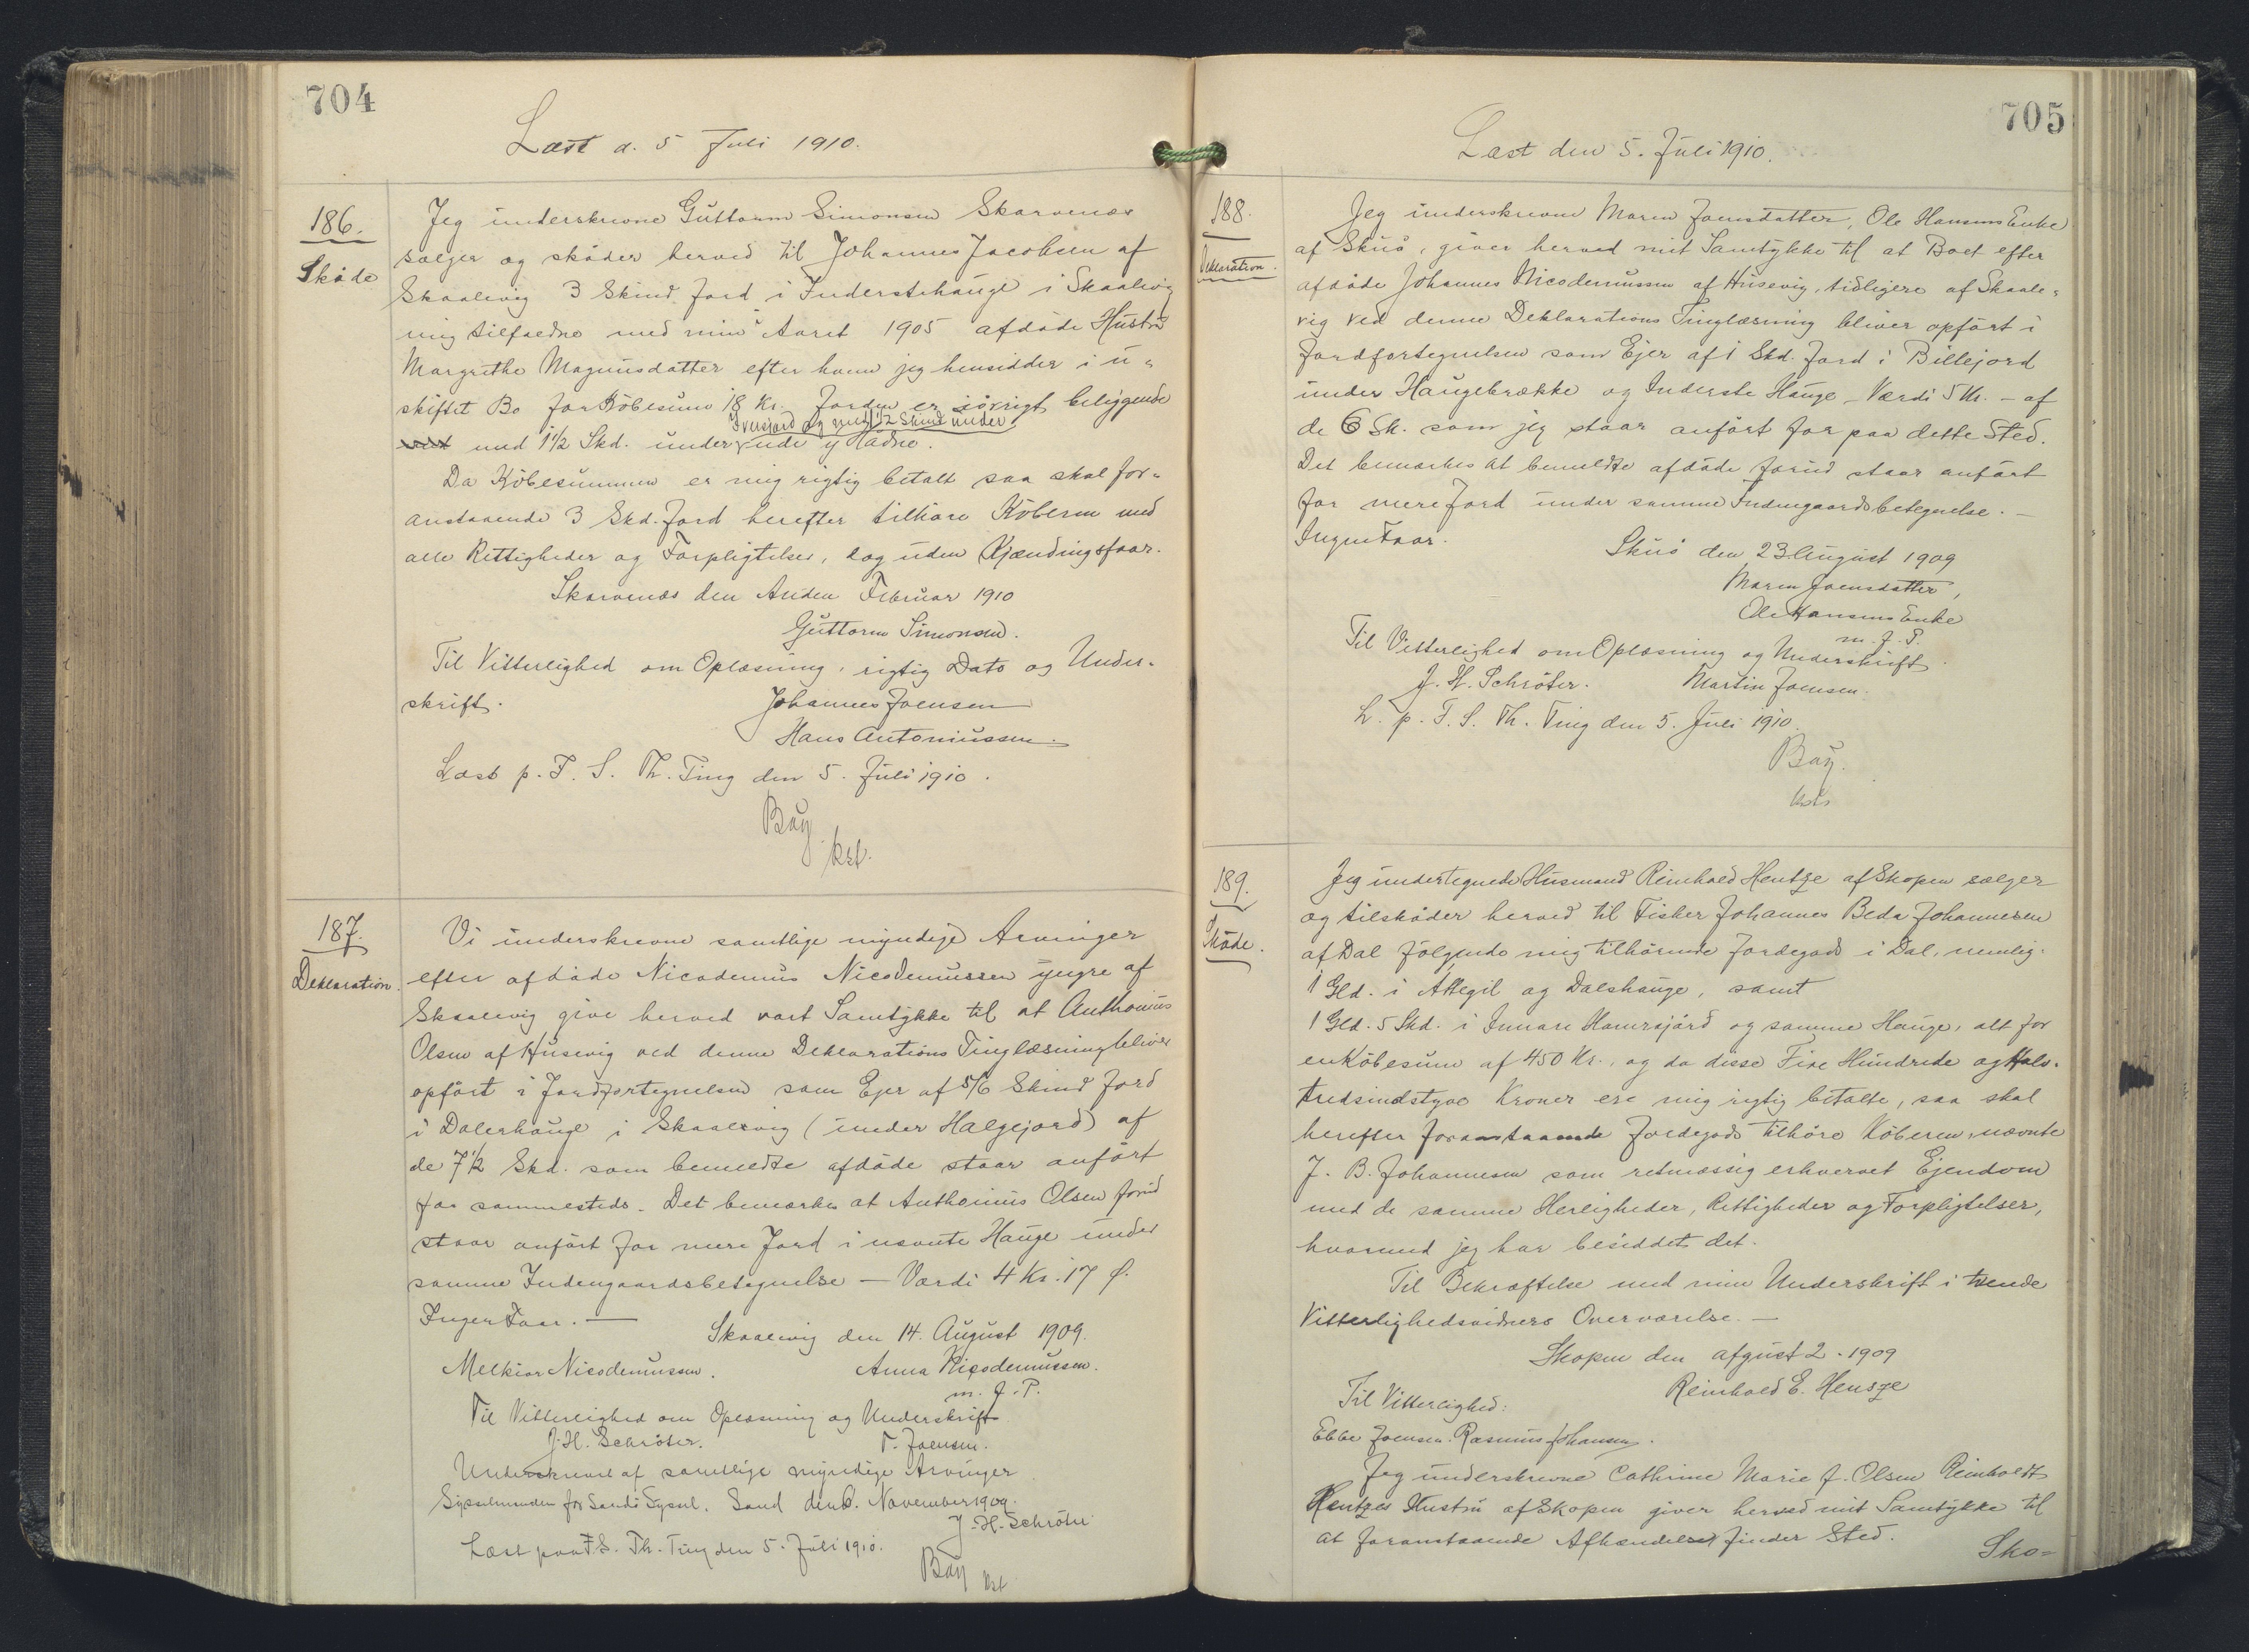 704
Læst d. 5 Juli 1910.
186.
Skøde
Jeg underskrevne Guttorm Simonsen Skarvenæs
sælger og skøder herved til Johannes Jacobsen af
Skaalevig 3 Skind Jord i Inderstehauge i Skaalevig
mig tilfaldne med min i Aaret 1905 afdøde Hustru
Margrethe Magnusdatter efter hvem jeg hensidder i u-
skiftet Bo for Købesum 18 Kr. Jorden er iøvrigt beliggende
Iversjord og med 1½ Skind under
med 1½ Skd. under ude y Hadne.
Da Købesummen er mig rigtig betalt saa skal for-
anstaaende 3 Skd. Jord herefter tilhøre Køberen med
alle Rettigheder og Forpligtelser, dog uden Kjændingsfaar.
Skarvenæs den Anden Februar 1910
Guttorm Simonsen.
Til Vitterlighed om Oplæsning, rigtig Dato og Under-
skrift.
Johannes Joensen
Hans Antoniussen.
Læst p. F. S. Th. Ting den 5. Juli 1910.
Bay
kst.
187.
Deklaration.
Vi underskrevne samtlige myndige Arvinger
efter afdøde Nicodemus Nicodemussen yngre af
Skaalevig give herved vort Samtykke til at Anthonius
Olsen af Husevig ved denne Deklarations Tinglæsning bliver
opført i Jordfortegnelsen som Ejer af 5/6 Skind Jord
i Dalerhauge i Skaalevig (under Halgejord) af
de 7½ Skd. som bemeldte afdøde staar anført
for sammesteds. Det bemærkes at Anthonius Olsen forud
staar anført for mere Jord i nævnte Hauge under
samme Indengaardsbetegnelse — Værdi 4 Kr. 17 Ø.
Ingen Faar. —
Skaalevig den 14. August 1909.
Melkior Nicodemussen. Anna Nicodemussen.
m. f. P.
Til Vitterlighed om Oplæsning og Underskrift
J. H. Schrøter. T. Joensen.
Underskrevet af samtlige myndige Arvinger
Sysselmanden for Sandø Syssel. Sand den 6. November 1909.
J. H. Schrøter
Læst paa F. S. Th. Ting den 5. Juli 1910.
Bay
kst
705
Læst den 5. Juli 1910.
188.
Deklaration.
Jeg underskrevne Maren Joensdatter, Ole Hansens Enke
af Skuø, giver herved mit Samtykke til at Boet efter
afdøde Johannes Nicodemussen af Husevig, tidligere af Skaale-
vig ved denne Deklarations Tinglæsning bliver opført i
Jordfortegnelsen som Ejer af 1 Skd. Jord i Billejord
under Haugebrække og Inderste Hauge – Værdi 5 Kr. – af
de 6 Sk. som jeg staar anført for paa dette Sted.
Det bemærkes at bemeldte afdøde forud staar anført
for mere Jord under samme Indengaardsbetegnelse. —
Ingen Faar.
Skuø den 23 August 1909
Maren Joensdatter,
Ole Hansens Enke
m. f. P.
Til Vitterlighed om Oplæsning og Underskrift.
J. H. Schrøter. Martin Joensen.
L. p. F. S. Th. Ting den 5. Juli 1910.
Bay.
kst
189.
Skøde.
Jeg undertegnede Husmand Reinhold Hentze af Skopen sælger
og tilskøder herved til Fisker Johannes Beda Johannesen
af Dal følgende mig tilhørende Jordegods i Dal, nemlig:
1 Gld. i Attegil og Dalshauge, samt
1 Gld. 5 Skd. i Innare Hamrajård og samme Hauge, alt for
en Købesum af 450 Kr., og da disse Fire Hundrede og Halv-
tredsindstyve Kroner ere mig rigtig betalte, saa skal
herefter foranstaaende Jordegods tilhøre Køberen, nævnte
J. B. Johannesen som retmæssig erhvervet Ejendom
med de samme Herligheder, Rettigheder og Forpligtelser,
hvormed jeg har besiddet det.
Til Bekræftelse med min Underskrift i tvende
Vitterlighedsvidners Overværelse. —
Skopen den afgust 2. 1909
Reinhold E. Hensze
Til Vitterlighed:
Ebbe Joensen. Rasmus Johansen.
Jeg underskrevne Cathrine Marie J. Olsen Reinholdt
Hentzes Hustru af Skopen giver herved mit Samtykke til
at foranstaaende Afhændelse finder Sted.
Sko-